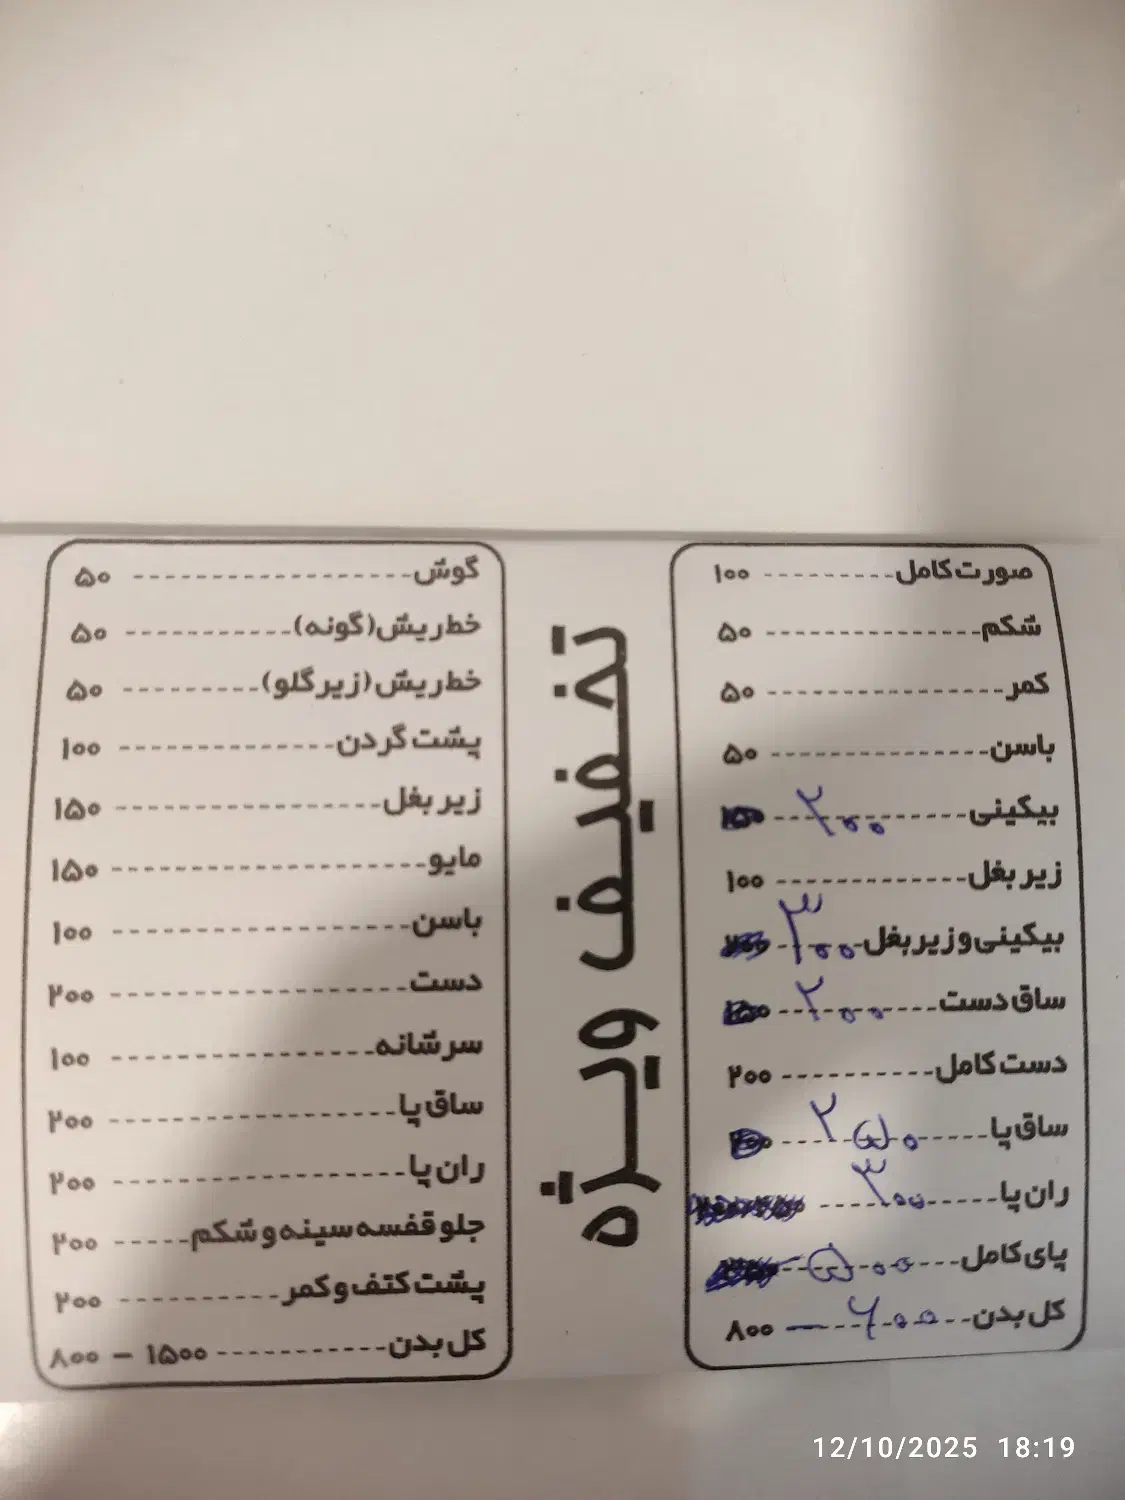 صورت کامل ---------- ۱۰۰
شکم --------------- ۵۰
کمر ---------------- ۵۰
باسن --------------- ۵۰
بیکینی ------------- ۲۰۰ ۱۵۰
زیر بغل ------------- ۱۰۰
بیکینی و زیر بغل ---- ۳۰۰
ساق دست ---------- ۲۰۰ ۱۵۰
دست کامل ---------- ۲۰۰
ساق پا ------------- ۲۵۰
ران پا -------------- ۳۰۰
پای کامل ----------- ۵۰۰
کل بدن ------------ ۶۰۰ — ۸۰۰
تخفیف ویژه
گوش ------------------ ۵۰
خط ریش (گونه) ----------- ۵۰
خط ریش (زیر گلو) --------- ۵۰
پشت گردن -------------- ۱۰۰
زیر بغل ----------------- ۱۵۰
مایو -------------------- ۱۵۰
باسن ------------------- ۱۰۰
دست ------------------- ۲۰۰
سر شانه ---------------- ۱۰۰
ساق پا ----------------- ۲۰۰
ران پا ------------------ ۲۰۰
جلو قفسه سینه و شکم ----- ۲۰۰
پشت کتف و کمر ---------- ۲۰۰
کل بدن ----------- ۱۵۰۰ – ۸۰۰
12/10/2025 18:19